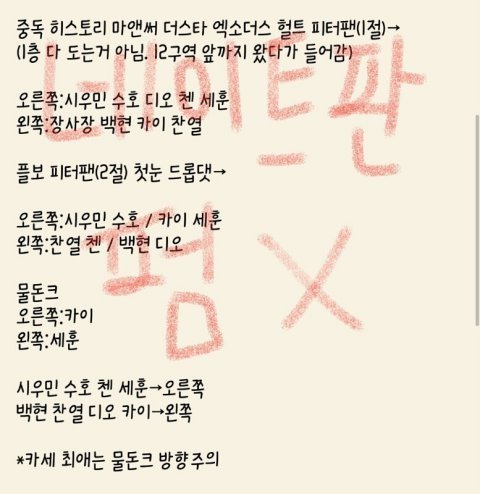 중독 히스토리 마앤써 더스타 엑소더스 헐트 피터팬(1절)→
(1층 다 도는거 아님. 12구역 앞까지 왔다가 들어감)
오른쪽:시우민 수호 디오 첸 세훈
왼쪽:장사장 백현 카이 찬열
플보 피터팬(2절) 첫눈 드롭댓→
오른쪽:시우민 수호 / 카이 세훈
왼쪽:찬열 첸 / 백현 디오
물돈크
오른쪽:카이
왼쪽:세훈
시우민 수호 첸 세훈→오른쪽
백현 찬열 디오 카이→왼쪽
*카세 최애는 물돈크 방향주의
네이트판
펌 X